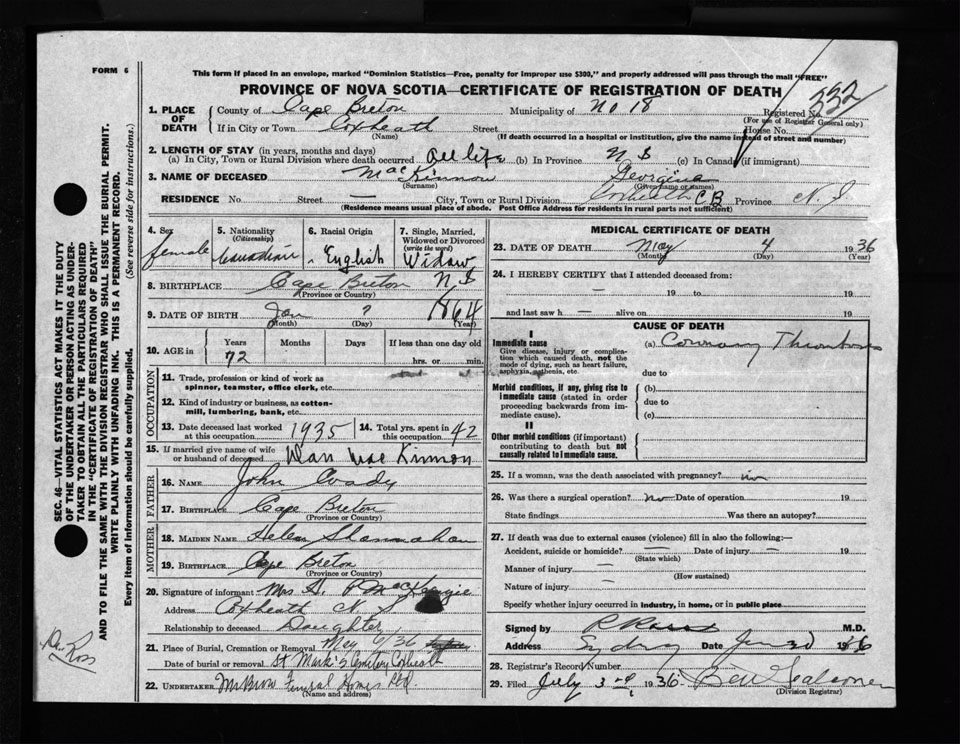 FORM 6
This form if placed in an envelope, marked "Dominion Statistics—Free, penalty for improper use $300," and properly addressed will pass through the mail "FREE"
PROVINCE OF NOVA SCOTIA—CERTIFICATE OF REGISTRATION OF DEATH
332
1. PLACE OF DEATH
County of Cape Breton Municipality of No 18 Registered No.
(For use of Registrar General only)
If in City or Town Coxheath Street House No.
(Name) (If death occurred in a hospital or institution, give the name instead of street and number)
2. LENGTH OF STAY (in years, months and days)
(a) In City, Town or Rural Division where death occurred all life (b) In Province N S (c) In Canada (if immigrant)
3. NAME OF DECEASED MacKinnon Georgina
(Surname) (Given name or names)
RESIDENCE No. Street — City, Town or Rural Division Coxheath C B Province N. S
(Residence means usual place of abode. Post Office Address for residents in rural parts not sufficient)
4. Sex
female
5. Nationality
(Citizenship)
Canadian
6. Racial Origin
English
7. Single, Married, Widowed or Divorced
(write the word)
Widow
8. BIRTHPLACE Cape Breton N S
(Province or Country)
9. DATE OF BIRTH Jan ? 1864
(Month) (Day) (Year)
10. AGE in
Years Months Days If less than one day old
72 hrs. or min.
OCCUPATION
11. Trade, profession or kind of work as spinner, teamster, office clerk, etc.
12. Kind of industry or business, as cotton-mill, lumbering, bank, etc.
13. Date deceased last worked at this occupation 1935
14. Total yrs. spent in this occupation 42
15. If married give name of wife or husband of deceased Dan Mac Kinnon
FATHER
16. NAME John Coady
17. BIRTHPLACE Cape Breton
(Province or Country)
MOTHER
18. MAIDEN NAME Helen Shannahan
19. BIRTHPLACE Cape Breton
(Province or Country)
20. Signature of informant Mrs A. P MacKenzie
Address Coxheath N S
Relationship to deceased Daughter
21. Place of Burial, Cremation or Removal May 6/36
Date of burial or removal St Mark's Cemetery Coxheath
22. UNDERTAKER Funeral Home Ltd
(Name and address)
MEDICAL CERTIFICATE OF DEATH
23. DATE OF DEATH May 4 1936
(Month) (Day) (Year)
24. I HEREBY CERTIFY that I attended deceased from:
— 19 to 19
and last saw h — alive on 19
CAUSE OF DEATH
I
Immediate cause
Give disease, injury or complication which caused death, not the mode of dying, such as heart failure, asphyxia, asthenia, etc.
(a) Coronary Thrombosis
due to
Morbid conditions, if any, giving rise to immediate cause (stated in order proceeding backwards from immediate cause).
(b)
due to
(c)
II
Other morbid conditions (if important) contributing to death but not causally related to immediate cause.
25. If a woman, was the death associated with pregnancy? no
26. Was there a surgical operation? no Date of operation 19
State findings Was there an autopsy?
27. If death was due to external causes (violence) fill in also the following:—
Accident, suicide or homicide? — Date of injury — 19
(State which)
Manner of injury —
(How sustained)
Nature of injury —
Specify whether injury occurred in industry, in home, or in public place
Signed by M.D.
Address Sydney Date 1936
28. Registrar's Record Number
29. Filed July 3rd 1936
(Division Registrar)
SEC. 46—VITAL STATISTICS ACT MAKES IT THE DUTY
OF THE UNDERTAKER OR PERSON ACTING AS UNDER-
TAKER TO OBTAIN ALL THE PARTICULARS REQUIRED
IN THE "CERTIFICATE OF REGISTRATION OF DEATH"
AND TO FILE THE SAME WITH THE DIVISION REGISTRAR WHO SHALL ISSUE THE BURIAL PERMIT.
WRITE PLAINLY WITH UNFADING INK. THIS IS A PERMANENT RECORD.
Every item of information should be carefully supplied. (See reverse side for instructions.)
Dr. Ross